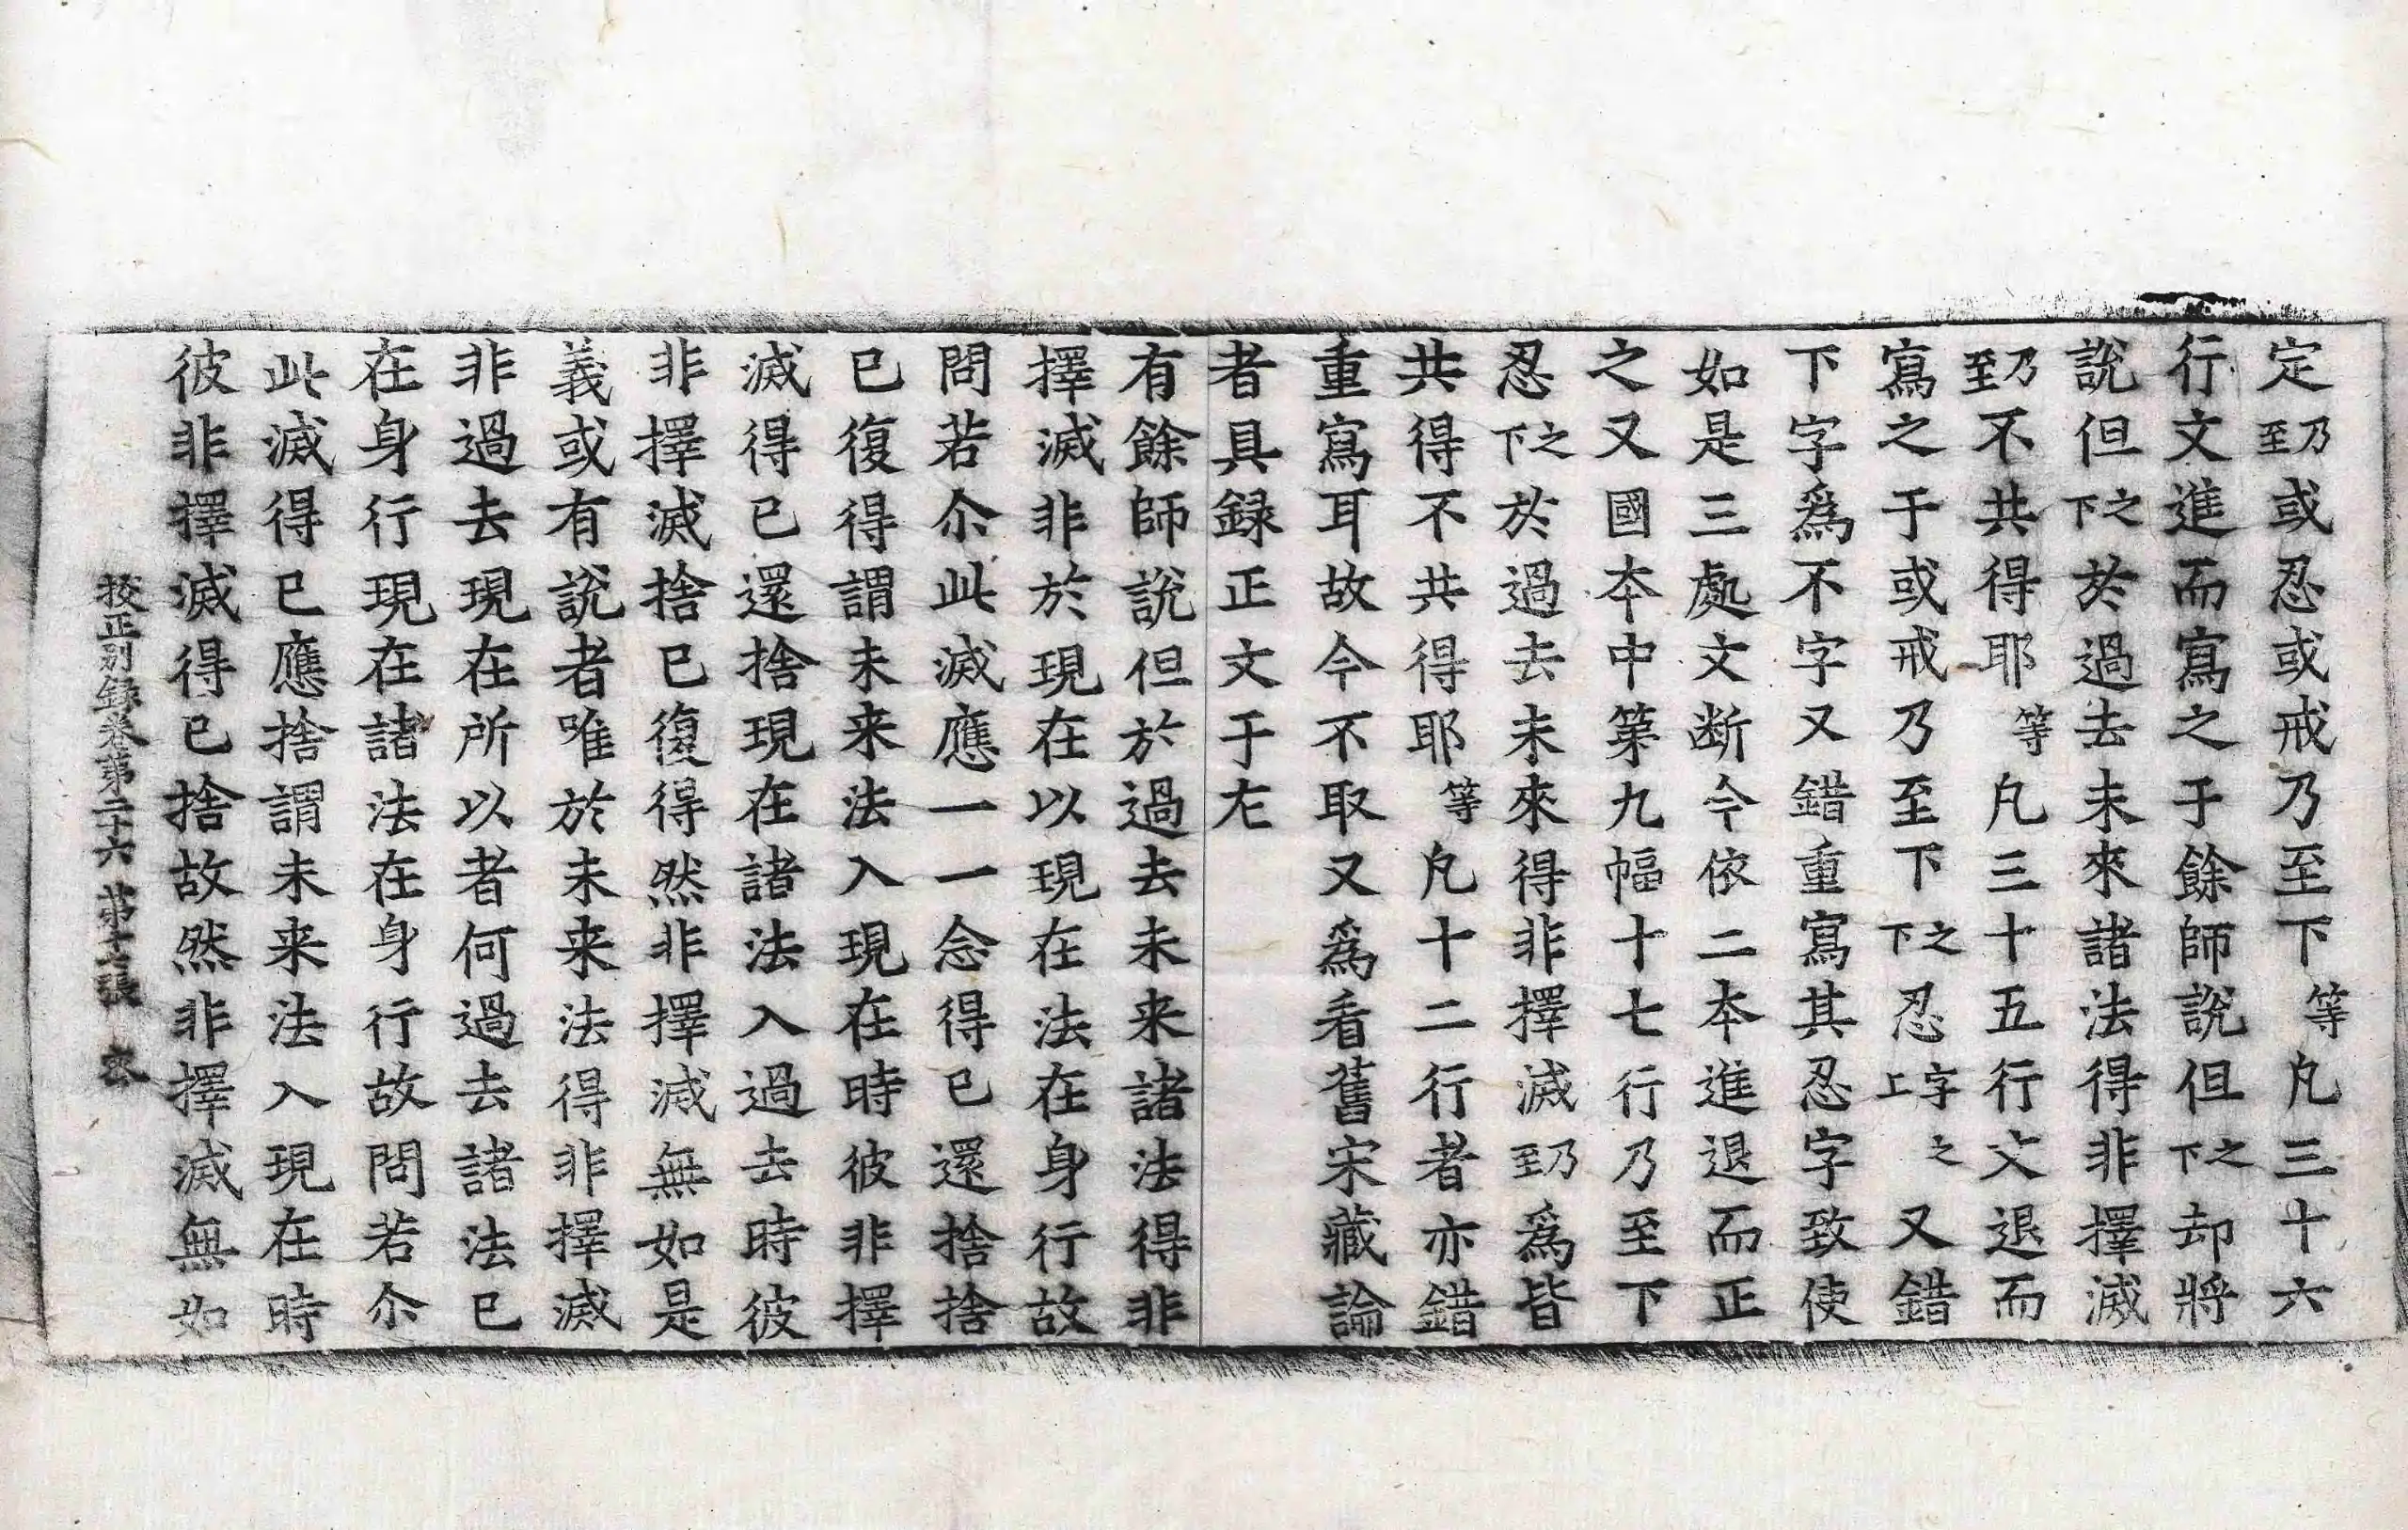 定乃至或忍或戒乃至下等凡三十六
行文進而寫之于餘師說但之下却將
說但之下於過去未來諸法得非擇滅
乃至不共得耶等凡三十五行文退而
寫之于或戒乃至下之下忍字上之又錯
下字爲不字又錯重寫其忍字致使
如是三處文断今依二本進退而正
之又國本中第九幅十七行乃至下
忍之下於過去未來得非擇滅乃至爲皆
共得不共得耶等凡十二行者亦錯
重寫耳故今不取又爲看舊宋藏論
者具録正文于左
有餘師說但於過去未来諸法得非
擇滅非於現在以現在法在身行故
問若尒此滅應一一念得已還捨捨
已復得謂未来法入現在時彼非擇
滅得已還捨現在諸法入過去時彼
非擇滅捨已復得然非擇滅無如是
義或有說者唯於未来法得非擇滅
非過去現在所以者何過去諸法已
在身行現在諸法在身行故問若尒
此滅得已應捨謂未来法入現在時
彼非擇滅得已捨故然非擇滅無如
校正别録卷第二十六 第十七張